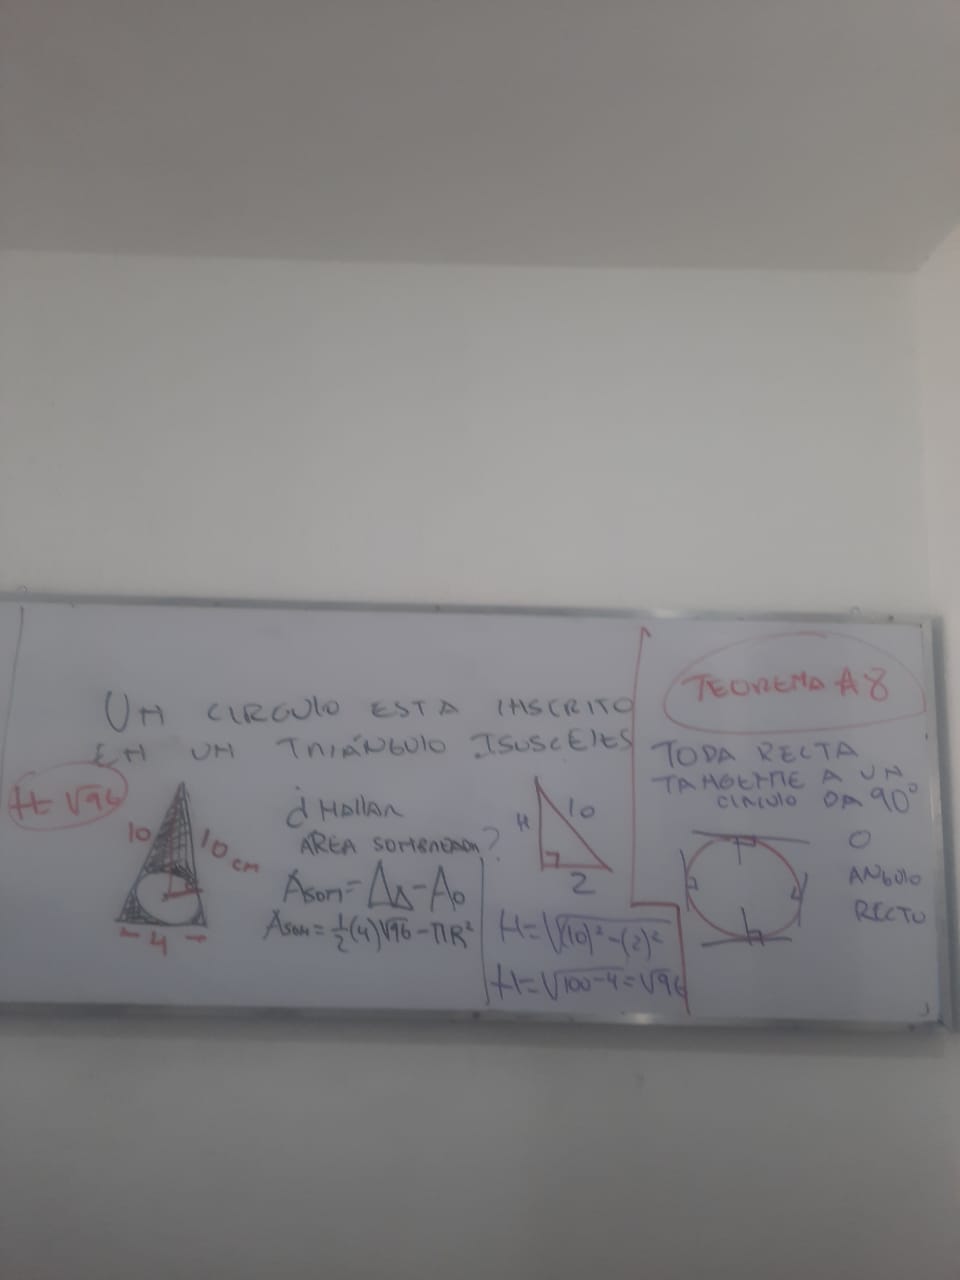 UN CIRCULO ESTA INSCRITO
EN UN TRIÁNGULO ISUSCELES
H=√96
10
10 cm
4
¿HALLAR
AREA SOMBREADA?
ASOM=Δ△-A○
ASOM=½(4)√96-πR²
H
10
2
H=√(10)²-(2)²
H=√100-4=√96
TEOREMA #8
TODA RECTA
TANGENTE A UN
CIRCULO DA 90°
O
ANGULO
RECTO